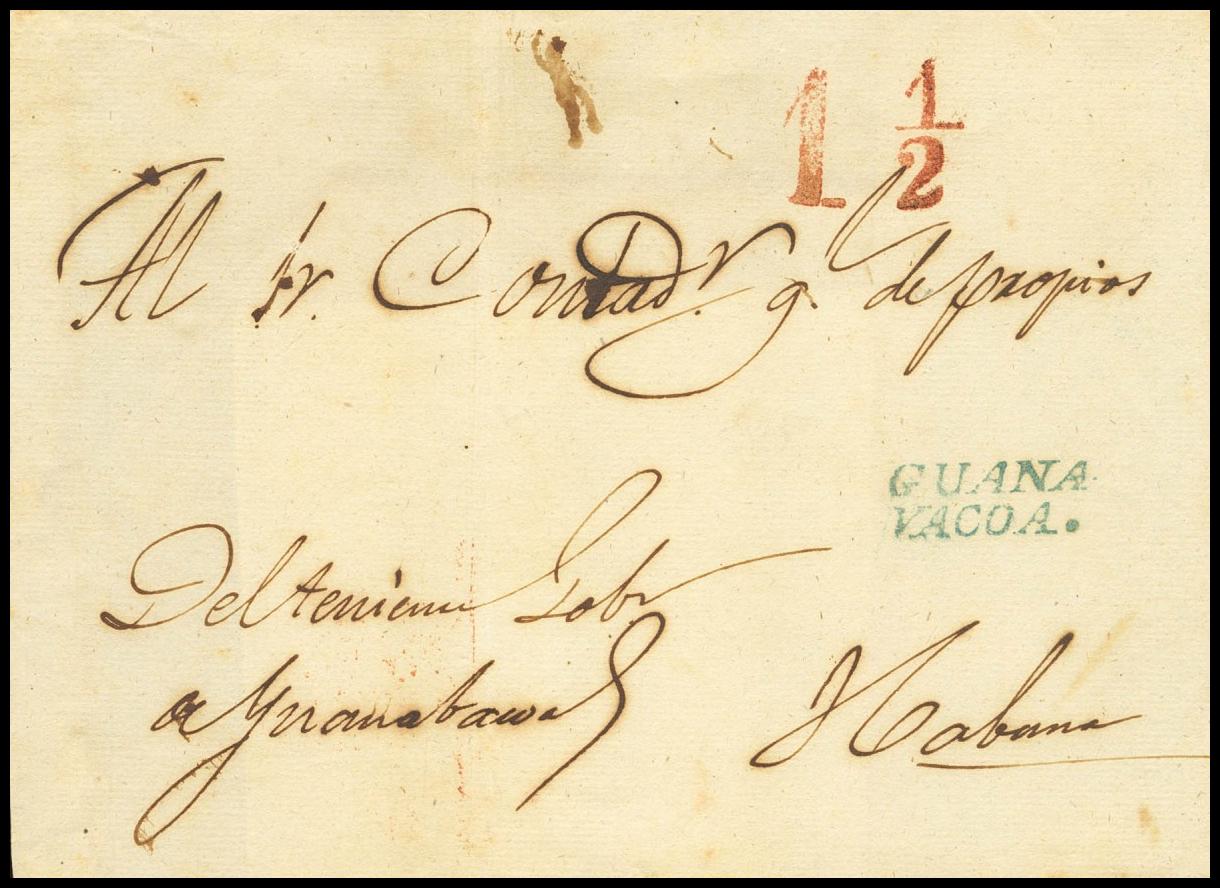 1 1/2
Al Sr. Contad.r g.l de propios
GUANA
VACOA.
Del teniente Gobr
de Guanabacoa
Habana